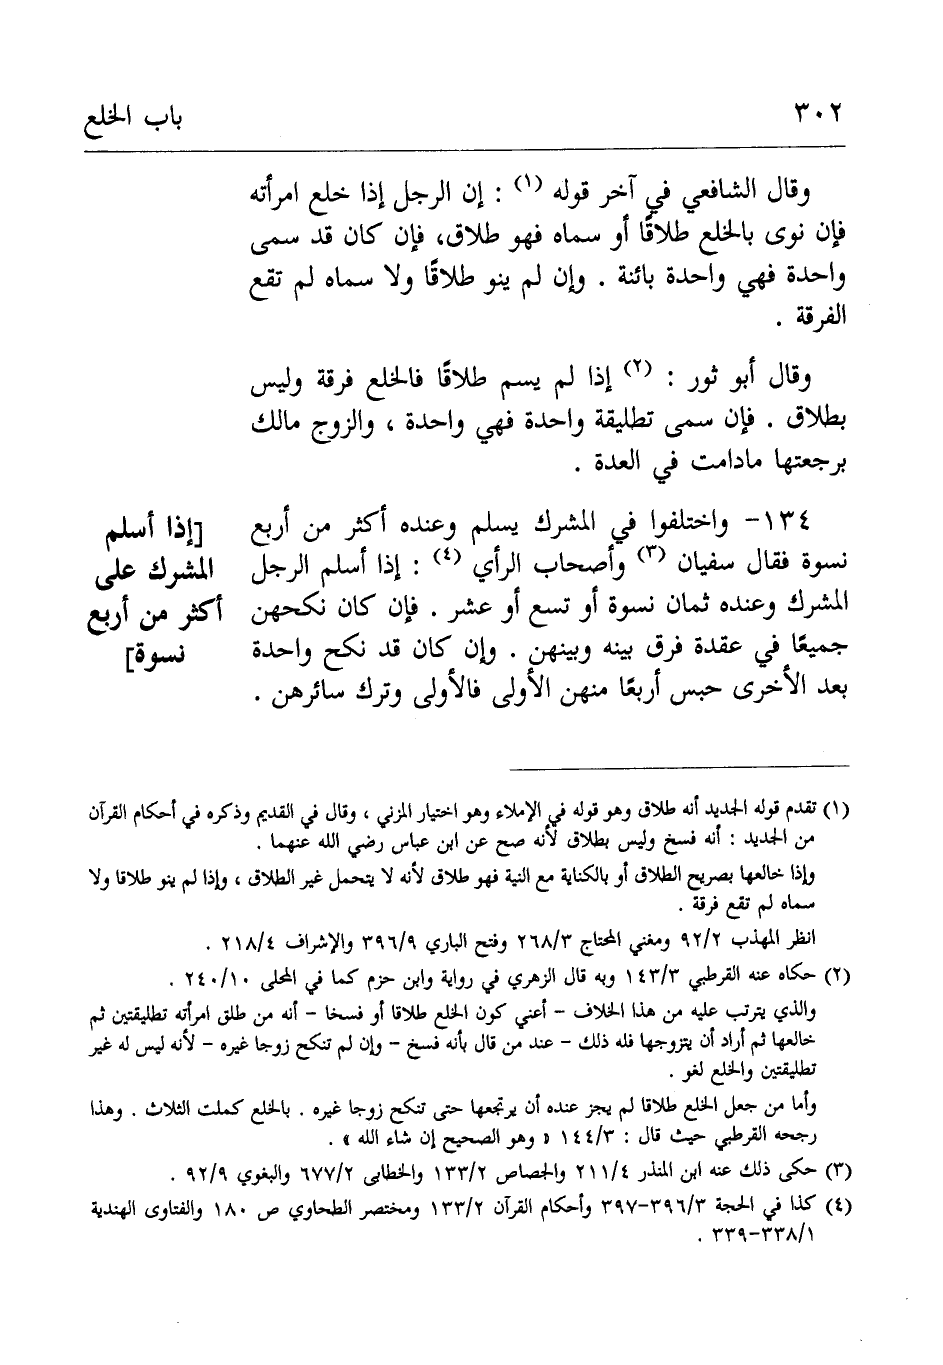 ٣٠٢
باب الخلع
وقال الشافعي في آخر قوله (١) : إن الرجل إذا خلع امرأته
فإن نوى بالخلع طلاقًا أو سماه فهو طلاق، فإن كان قد سمى
واحدة فهي واحدة بائنة . وإن لم ينو طلاقًا ولا سماه لم تقع
الفرقة .
وقال أبو ثور : (٢) إذا لم يسم طلاقًا فالخلع فرقة وليس
بطلاق . فإن سمى تطليقة واحدة فهي واحدة ، والزوج مالك
برجعتها مادامت في العدة .
[إذا أسلم
المشرك على
أكثر من أربع
نسوة]
١٣٤- واختلفوا في المشرك يسلم وعنده أكثر من أربع
نسوة فقال سفيان (٣) وأصحاب الرأي (٤) : إذا أسلم الرجل
المشرك وعنده ثمان نسوة أو تسع أو عشر . فإن كان نكحهن
جميعًا في عقدة فرق بينه وبينهن . وإن كان قد نكح واحدة
بعد الأخرى حبس أربعًا منهن الأولى فالأولى وترك سائرهن .
(١) تقدم قوله الجديد أنه طلاق وهو قوله في الإملاء وهو اختيار المزني ، وقال في القديم وذكره في أحكام القرآن
من الجديد : أنه فسخ وليس بطلاق لأنه صح عن ابن عباس رضي الله عنهما .
وإذا خالعها بصريح الطلاق أو بالكناية مع النية فهو طلاق لأنه لا يتحمل غير الطلاق ، وإذا لم ينو طلاقا ولا
سماه لم تقع فرقة .
انظر المهذب ٩٢/٢ ومغني المحتاج ٢٦٨/٣ وفتح الباري ٣٩٦/٩ والإشراف ٢١٨/٤ .
(٢) حكاه عنه القرطبي ١٤٣/٣ وبه قال الزهري في رواية وابن حزم كما في المحلى ٢٤٠/١٠ .
والذي يترتب عليه من هذا الخلاف - أعني كون الخلع طلاقا أو فسخا - أنه من طلق امرأته تطليقتين ثم
خالعها ثم أراد أن يتزوجها فله ذلك - عند من قال بأنه فسخ - وإن لم تنكح زوجا غيره - لأنه ليس له غير
تطليقتين والخلع لغو .
وأما من جعل الخلع طلاقا لم يجز عنده أن يرتجعها حتى تنكح زوجا غيره . بالخلع كملت الثلاث . وهذا
رجحه القرطبي حيث قال : ١٤٤/٣ « وهو الصحيح إن شاء الله » .
(٣) حكى ذلك عنه ابن المنذر ٢١١/٤ والجصاص ١٣٣/٢ والخطابى ٦٧٧/٢ والبغوي ٩٢/٩ .
(٤) كذا في الحجة ٣٩٦/٣-٣٩٧ وأحكام القرآن ١٣٣/٢ ومختصر الطحاوي ص ١٨٠ والفتاوى الهندية
٣٣٨/١-٣٣٩ .